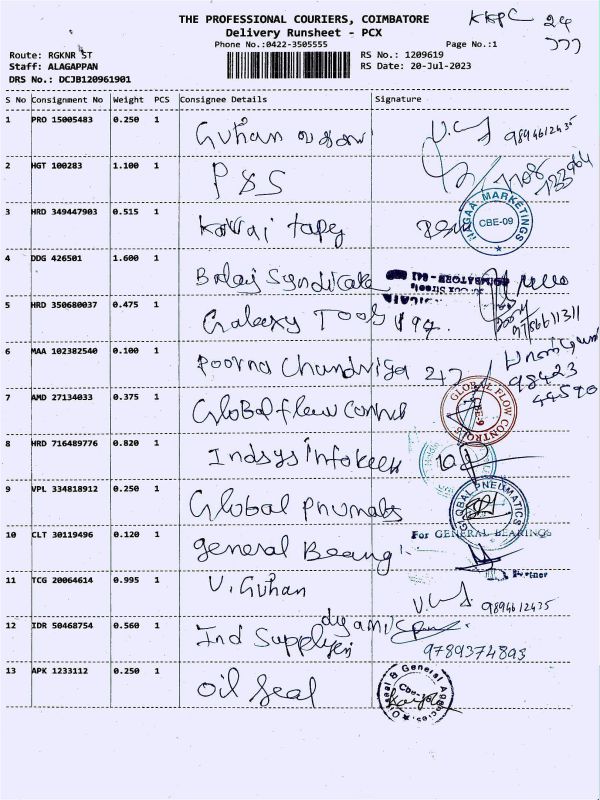 THE PROFESSIONAL COURIERS, COIMBATORE
KKPC 24
Delivery Runsheet - PCX
777
Phone No.:0422-3505555
Page No.:1
Route: RGKNR ST
RS No.: 1209619
Staff: ALAGAPPAN
RS Date: 20-Jul-2023
DRS No.: DCJB120961901
S No Consignment No Weight PCS Consignee Details Signature
1 PRO 15005483 0.250 1 Guhan 9894612435
2 HGT 100283 1.100 1 P&S
NAGAA MARKETINGS
CBE-09
3 HRD 349447903 0.515 1 Kovai tapes
4 DDG 426501 1.600 1 Balaj Syndicate
5 HRD 350680037 0.475 1 Galaxy Tools
9786611311
6 MAA 102382540 0.100 1 Poorna Chandriga 217
98423
44590
7 AMD 27134033 0.375 1 Global flow control
GLOBAL FLOW CONTROLS
CBE-9
8 HRD 716489776 0.820 1 Indsys infokeek
9 VPL 334818912 0.250 1 Global Pnumats
GLOBAL PNEUMATICS
10 CLT 30119496 0.120 1 general Beang
For GENERAL BEARINGS
Partner
11 TCG 20064614 0.995 1 V. Guhan 9894612435
12 IDR 50468754 0.560 1 Ind Suppliyen dyamic
9789374893
13 APK 1233112 0.250 1 Oil Seal
Oilseal & General Agencies